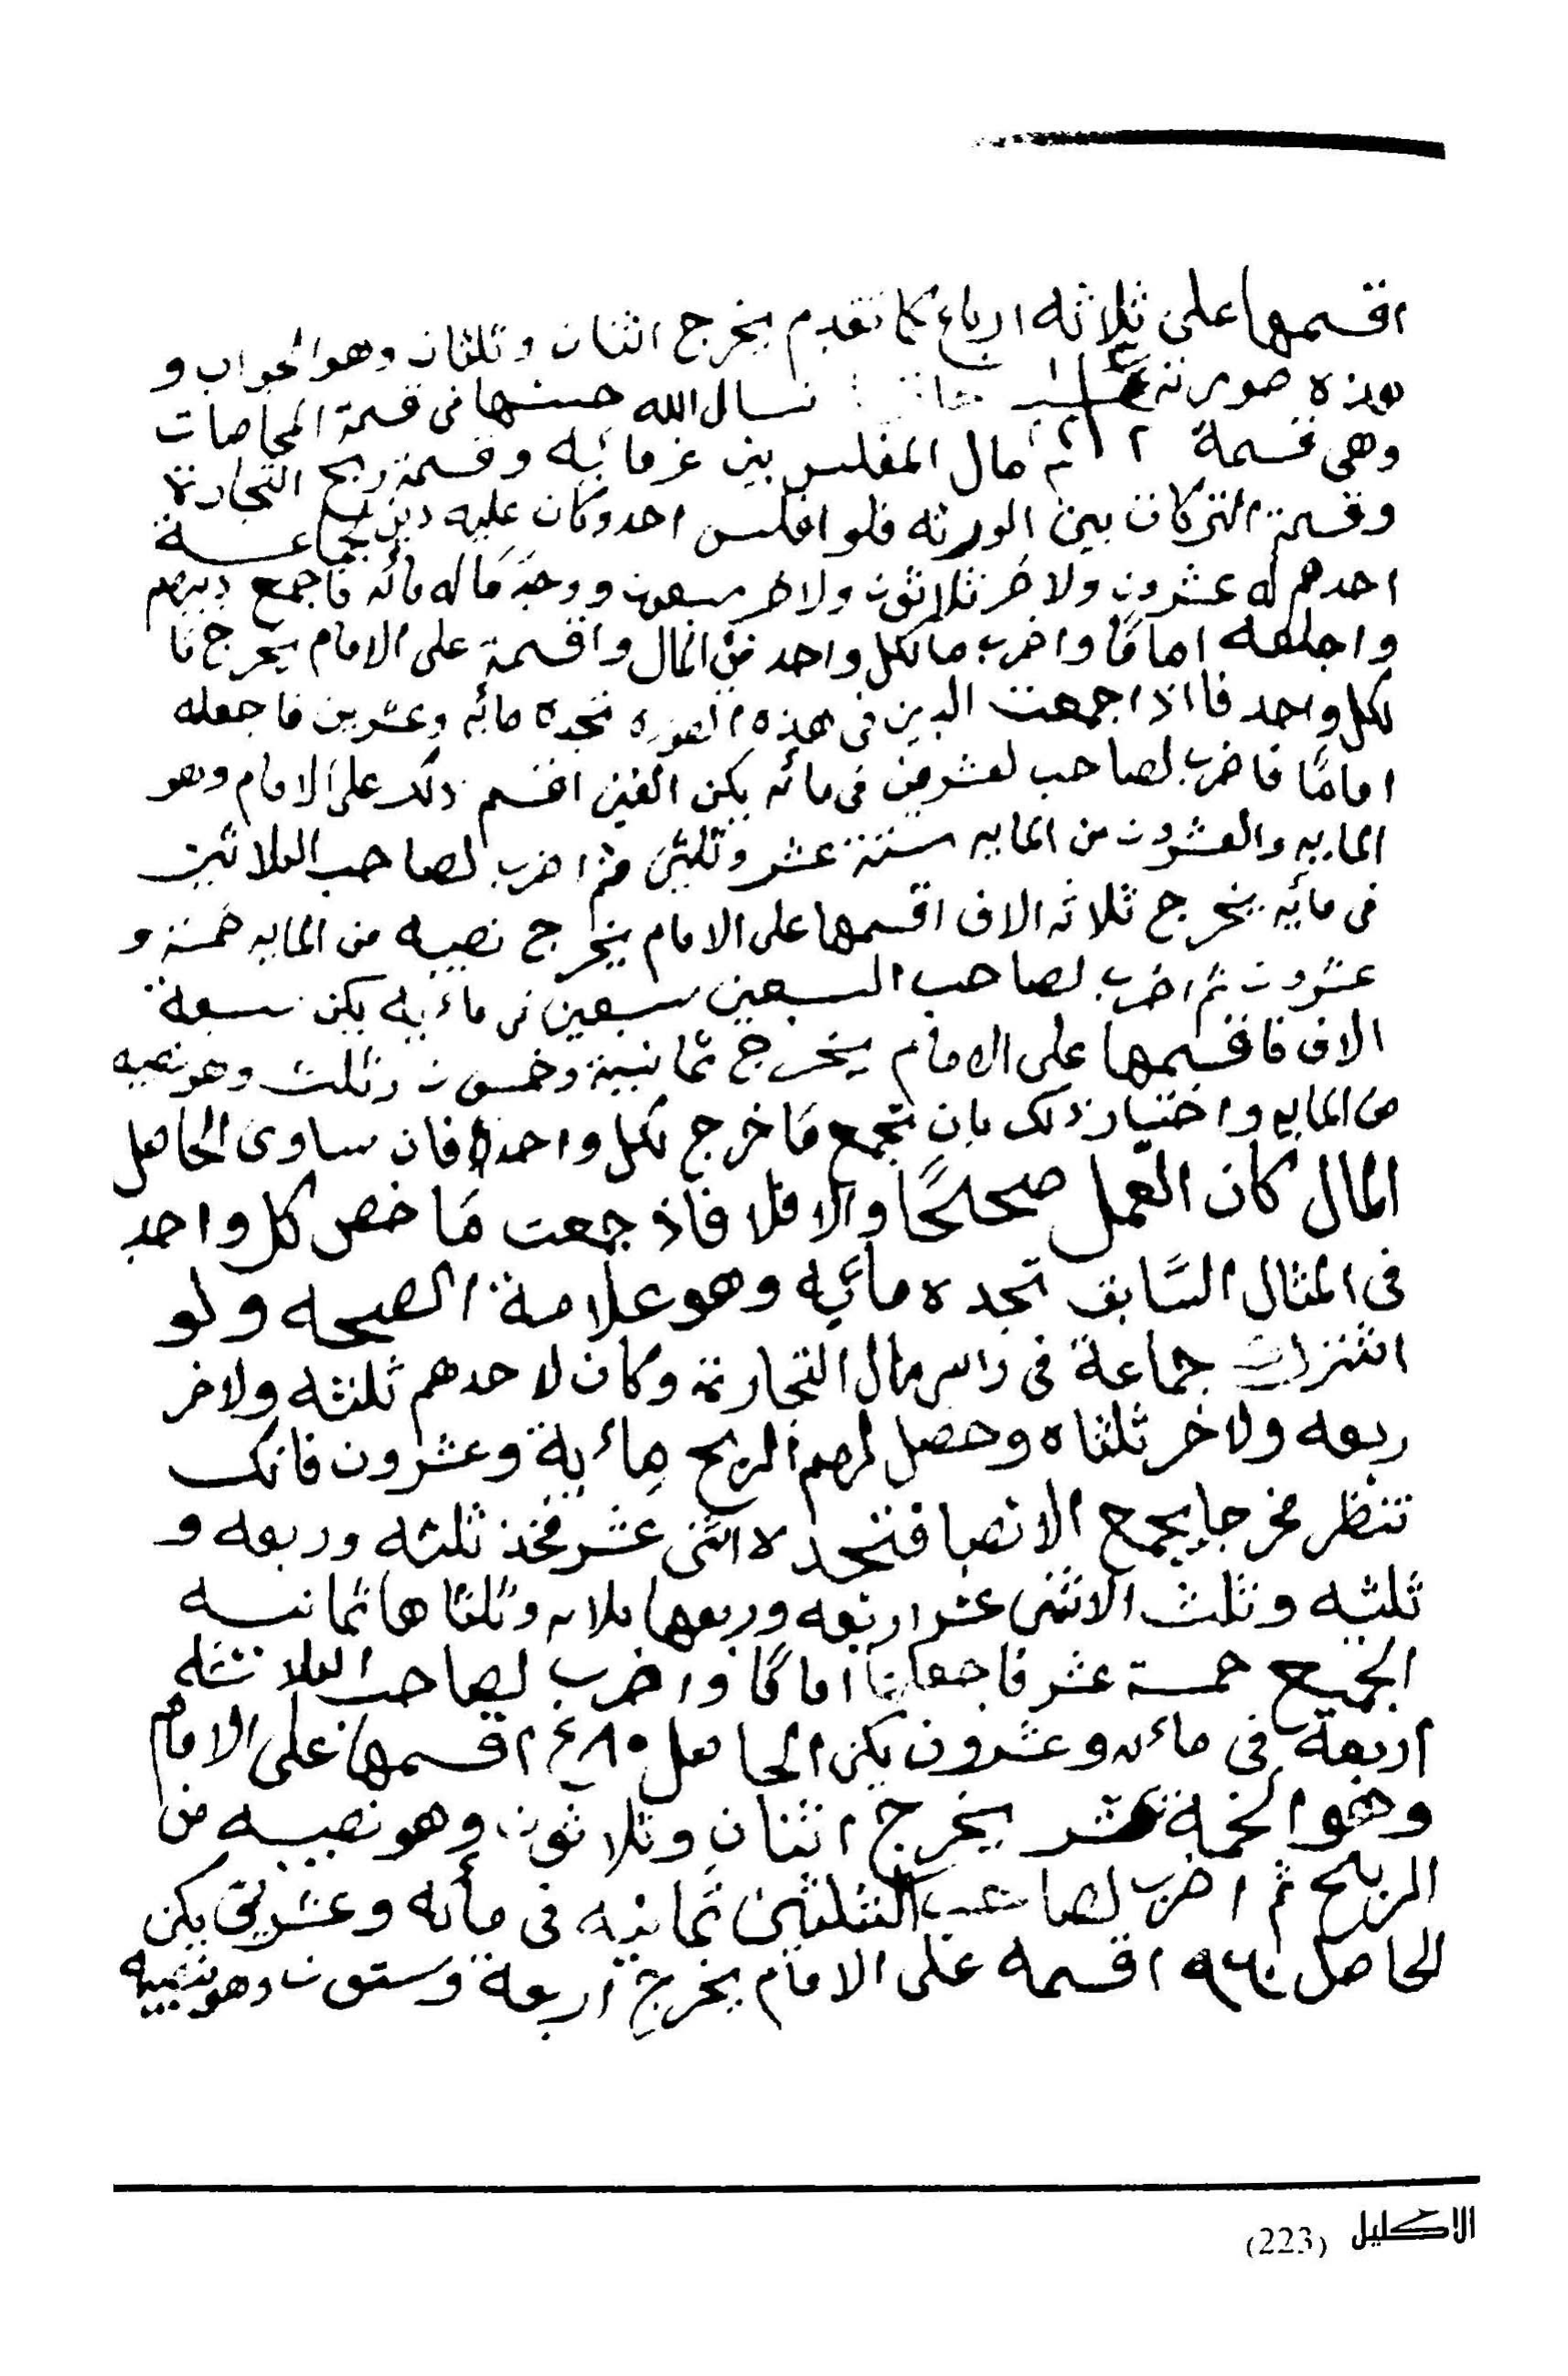 اقسمها على ثلاثه ارباع كما تقدم يخرج اثنان وثلثان وهو الجواب و
هذه صورته نسال الله حسنها فى قسمة المحاصات
وهى قسمة مال المفلس بين غرمائيه وقسمة ربح التجارة
وقسمة التركات بين الورثه فلو افلس احد وكان عليه دين لجماعة
احدهم له عشرون ولاخر ثلاثون ولاخر سبعون ووجد ماله مائه فاجمع دينهم
واجعله امامًا واضرب ما لكل واحد فى المال واقسمة على الامام يخرج ما
لكل واحد فااذا جمعت الدين فى هذه الصوره تجده مائه وعشرين فاجعله
امامًا فاضرب لصاحب لعشرين فى مائه يكن الفين اقسم ذلك على الامام وهو
المايه والعشرون من المايه ستة عشر وثلثين ثم اضرب لصاحب الثلاثين
فى مائيه يخرج ثلاثه الاف اقسمها على الامام يخرج نصيبه من المايه خمسة و
عشرون ثم اضرب لصاحب السبعين سبعين فى مائيه يكن سبعة
الاف فاقسمها على الامام يخرج ثمانيية وخمسون وثلث وهو نصيبه
من المايه واختبار ذلك بان تجمع ما خرج لكل واحد فان ساوى الحاصل
المال كان العمل صحيحًا والا فلا فاذ جمعت ما خص كل واحد
فى المثال السابق تجده مائيه وهو علامة الصحه ولو
اشترك جماعة فى راس مال التجارة وكان لاحدهم ثلثه ولاخر
ربعه ولاخر ثلثاه وحصل لهم الربح مائية وعشرون فانك
تنظر مخرجا يجمع الانصبا فتجده اثنى عشر فخذ ثلثه وربعه و
ثلثيه وثلث الاثنى عشر اربعه وربعها ثلاثه وثلثاها ثمانيه
الجميع خمسة عشر فاجعلها امامًا واضرب لصاحب الثلاثثه
اربعة فى مائه وعشرون يكن الحاصل ٤٨٠ اقسمها على الامام
وهو الخمة عشر يخرج اثنان وثلاثون وهو نصيبه من
الربح ثم اضرب لصاحب الثلثين ثمانيه فى مأئه وعشرين يكن
الحاصل ٩٦٠ اقسمه على الامام يخرج اربعة وستون وهو نصيبه
الاكليل (223)